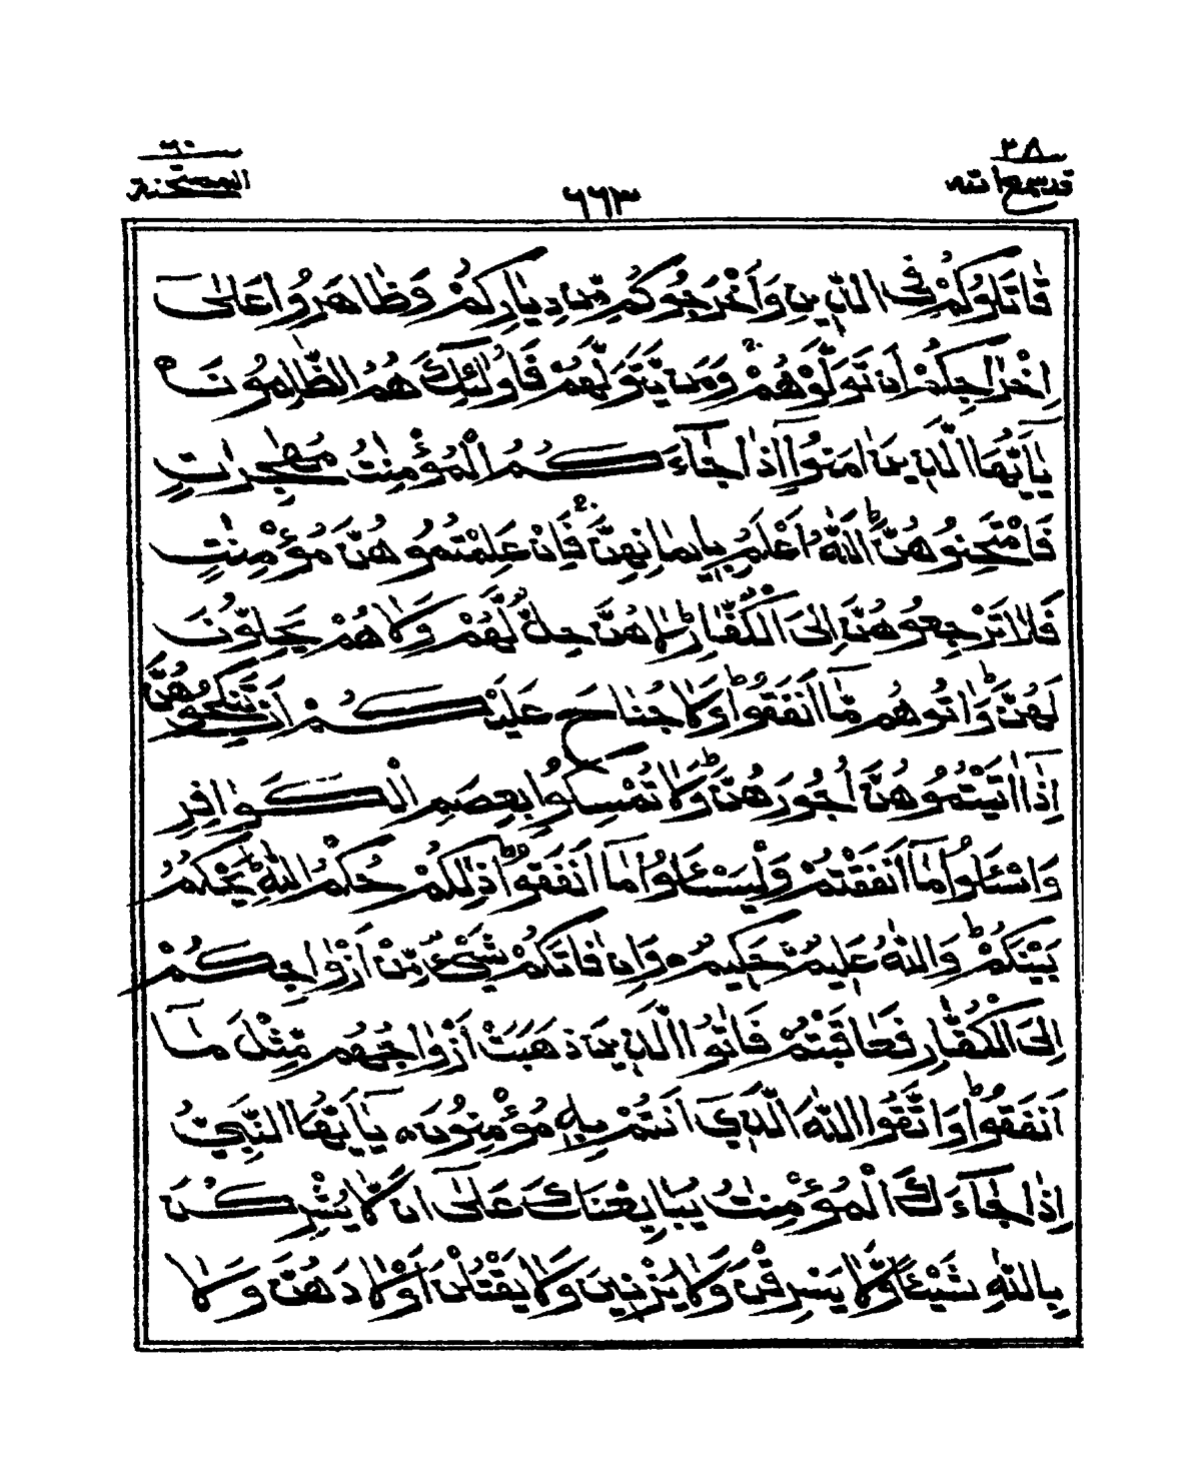 قد سمع الله ٢٨
الممتحنة ٦٠
٦٦٣
قَاتَلُوكُمْ فِي الدِّينِ وَأَخْرَجُوكُم مِّن دِيَارِكُمْ وَظَاهَرُوا عَلَىٰٓ
إِخْرَاجِكُمْ أَن تَوَلَّوْهُمْ ۚ وَمَن يَّتَوَلَّهُمْ فَأُولَٰئِكَ هُمُ الظَّالِمُونَ ۝
يَا أَيُّهَا الَّذِينَ آمَنُوا إِذَا جَاءَكُمُ الْمُؤْمِنَاتُ مُهَاجِرَاتٍ
فَامْتَحِنُوهُنَّ ۖ اللَّهُ أَعْلَمُ بِإِيمَانِهِنَّ ۖ فَإِنْ عَلِمْتُمُوهُنَّ مُؤْمِنَاتٍ
فَلَا تَرْجِعُوهُنَّ إِلَى الْكُفَّارِ ۖ لَا هُنَّ حِلٌّ لَّهُمْ وَلَا هُمْ يَحِلُّونَ
لَهُنَّ ۖ وَآتُوهُم مَّا أَنفَقُوا ۚ وَلَا جُنَاحَ عَلَيْكُمْ أَن تَنكِحُوهُنَّ
إِذَا آتَيْتُمُوهُنَّ أُجُورَهُنَّ ۚ وَلَا تُمْسِكُوا بِعِصَمِ الْكَوَافِرِ
وَاسْأَلُوا مَا أَنفَقْتُمْ وَلْيَسْأَلُوا مَا أَنفَقُوا ۚ ذَٰلِكُمْ حُكْمُ اللَّهِ ۖ يَحْكُمُ
بَيْنَكُمْ ۚ وَاللَّهُ عَلِيمٌ حَكِيمٌ ۝ وَإِن فَاتَكُمْ شَيْءٌ مِّنْ أَزْوَاجِكُمْ
إِلَى الْكُفَّارِ فَعَاقَبْتُمْ فَآتُوا الَّذِينَ ذَهَبَتْ أَزْوَاجُهُم مِّثْلَ مَا
أَنفَقُوا ۚ وَاتَّقُوا اللَّهَ الَّذِي أَنتُم بِهِ مُؤْمِنُونَ ۝ يَا أَيُّهَا النَّبِيُّ
إِذَا جَاءَكَ الْمُؤْمِنَاتُ يُبَايِعْنَكَ عَلَىٰ أَن لَّا يُشْرِكْنَ
بِاللَّهِ شَيْئًا وَّلَا يَسْرِقْنَ وَلَا يَزْنِينَ وَلَا يَقْتُلْنَ أَوْلَادَهُنَّ وَلَا